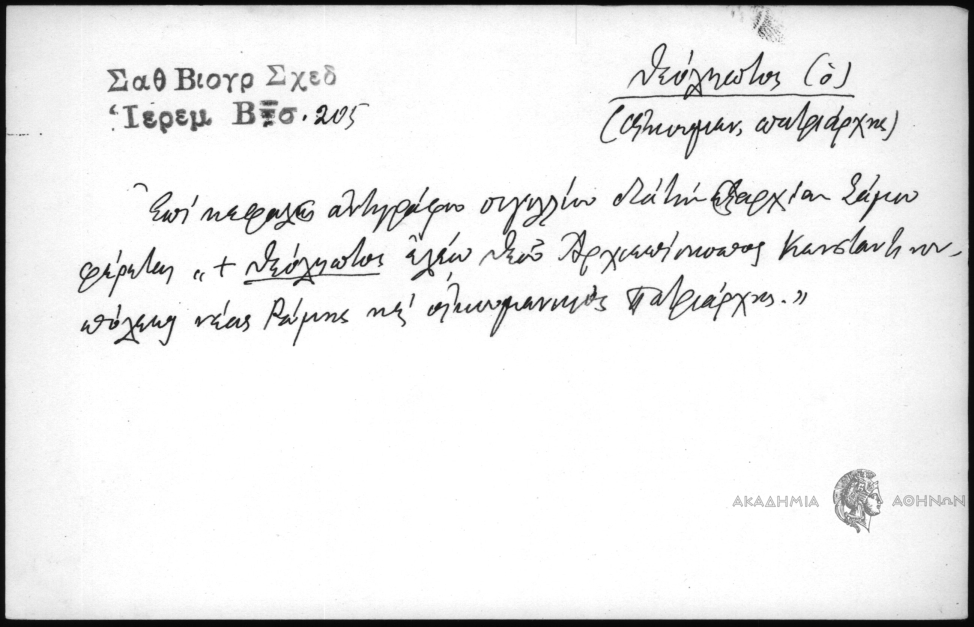 Σαθ Βιογρ Σχεδ
Ἱερεμ Β σ. 205
Θεόληπτος (ὁ)
(Οἰκουμεν. πατριάρχης)
Ἐπὶ κεφαλῆς ἀντιγράφου σιγιλλίου διὰ τὴν ἐξαρχίαν Σάμου
φέρεται „+ Θεόληπτος ἐλέῳ Θεοῦ Ἀρχιεπίσκοπος Κωνσταντινου-
πόλεως νέας Ῥώμης καὶ οἰκουμενικὸς Πατριάρχης."
ΑΚΑΔΗΜΙΑ ΑΘΗΝΩΝ